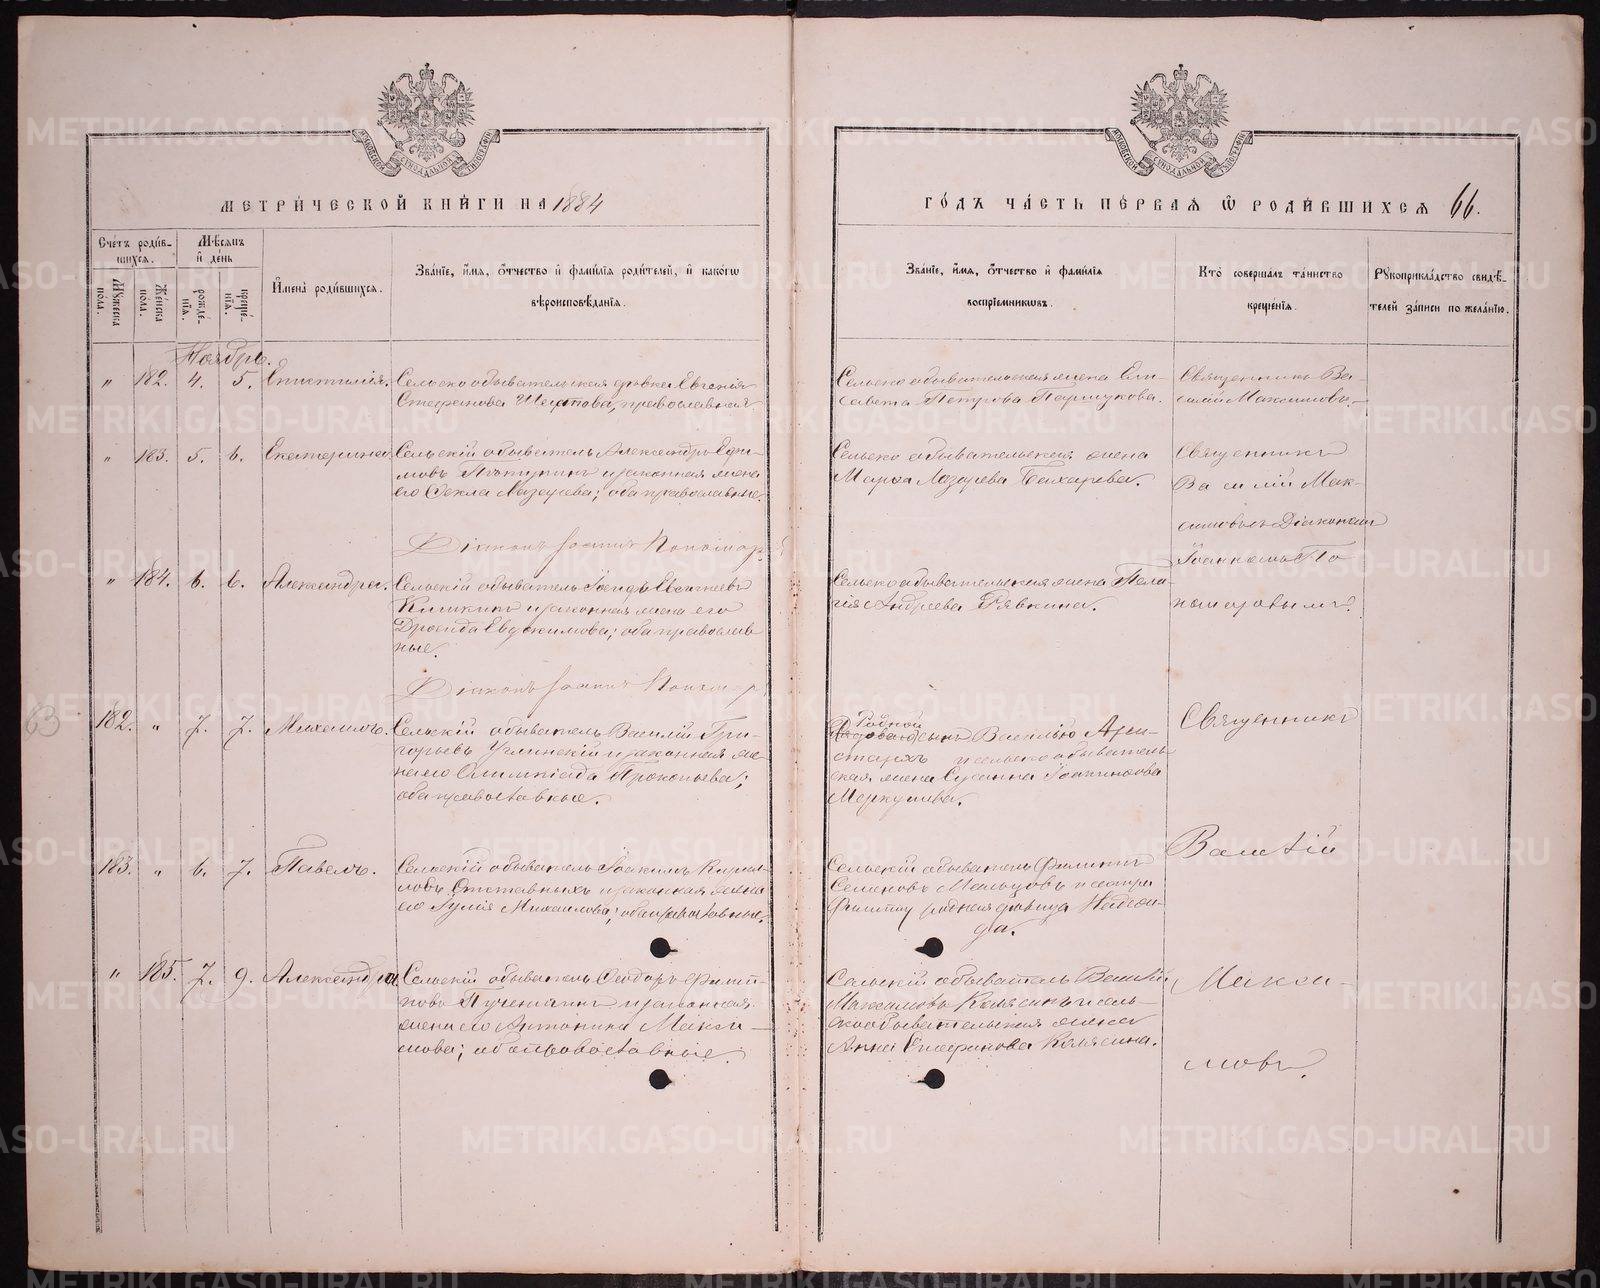 МЕТРИ́ЧЕСКОЙ КНИ́ГИ НА 1884
ГО́ДЪ ЧА́СТЬ ПЕ́РВАЯ Ѡ҆ РОДИ́ВШИХСЯ 66.
Сче́тъ роди́в-
шихся.
Мѣ́сяцъ
и҆ де́нь
Му́жеска по́ла.
Же́нска по́ла.
рожде́-
нїя.
креще́-
нїя.
И҆мена̀ роди́вшихся.
Зва́нїе, и҆́мя, ѻ҆́тчество и҆ фами́лїя роди́телей, и҆ како́гѡ
вѣроисповѣ́данїя.
Зва́нїе, и҆́мя, ѻ҆́тчество и҆ фами́лїя
воспрїе́мниковъ.
Кто̀ соверша́лъ та́инство
креще́нїя.
Рукоприкла́дство свидѣ́-
телей за́писи по жела́нїю.
Ноябрь.
" 182. 4. 5. Епистимія.
Сельскообывательская дѣвка Евгенія
Стефанова православная.
Сельскообывательская жена Ели-
савета Петрова Паршукова.
Священникъ Ва-
силій Максимовъ.
" 183. 5. 6. Екатерина
Сельскій обыватель Александръ Ефи-
мовъ и законная жена
его Ѳекла Лазарева; оба православные.
Сельскообывательская жена
Марѳа Лазарева Бахарева.
Священникъ
Василій Мак-
симовъ съ Діакономъ
Іоанномъ По-
номаровымъ.
Діаконъ Іоаннъ Пономар
" 184. 6. 6. Александра.
Сельскій обыватель
и законная жена его
Евдокимова; оба православ-
ные.
Сельскообывательская жена Пела-
гія Андреева Рявкина.
Діаконъ Іоаннъ Пономар
63
182. " 7. 7. Михаилъ.
Сельскій обыватель Василій Гри-
горьевъ Углинскій и законная же-
на его Олимпіада Прокопьева;
оба православные.
Родной
сынъ Василью Ари-
стархъ и сельскообыватель-
ская жена Сусанна
Меркурьева.
Священникъ
183. " 6. 7. Павелъ.
Сельскій обыватель Іоакимъ Кирил-
ловъ Отставныхъ и законная жена
его Іулія Михаилова; оба православные.
Сельскій обыватель Филиппъ
Семеновъ Мальцовъ и сестра
Филиппу родная дѣвица Надеж-
да.
Василій
" 185. 7. 9. Александра
Сельскій обыватель Ѳеодоръ Филип-
повъ и законная
жена его Антонина Макси-
мова; оба православные.
Сельскій обыватель Василій
Максимовъ Колясинъ и сель-
скообывательская жена
Анна Стефанова Колясина.
Макси-
мовъ.